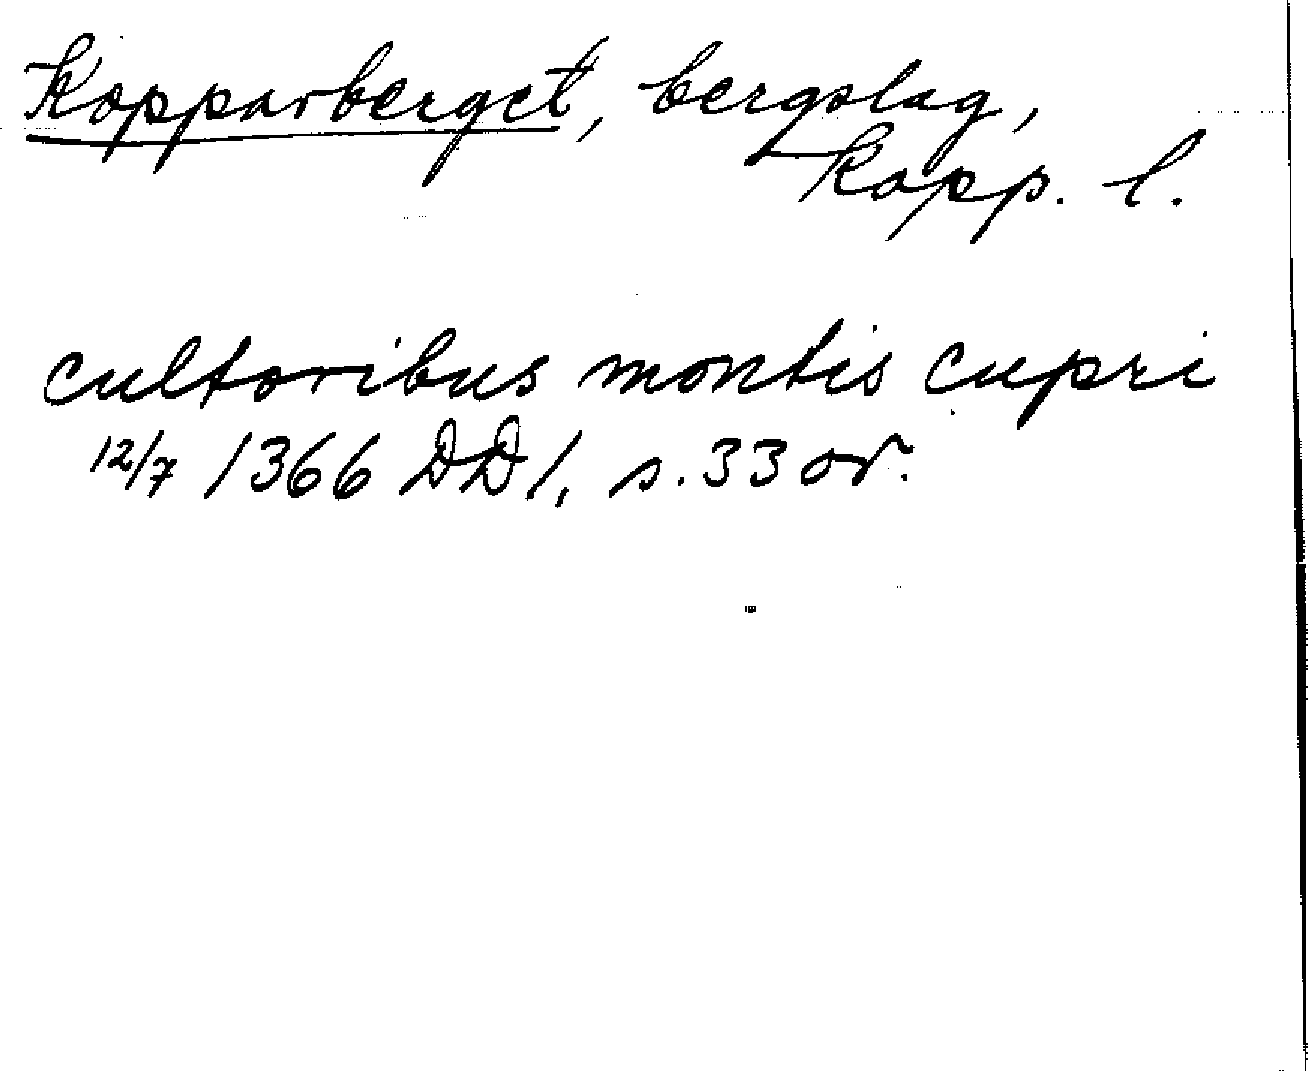 Kopparberget, bergslag,
Kopp. l.
cultoribus montis cupri
12/7 1366 DD 1, s. 33 or.